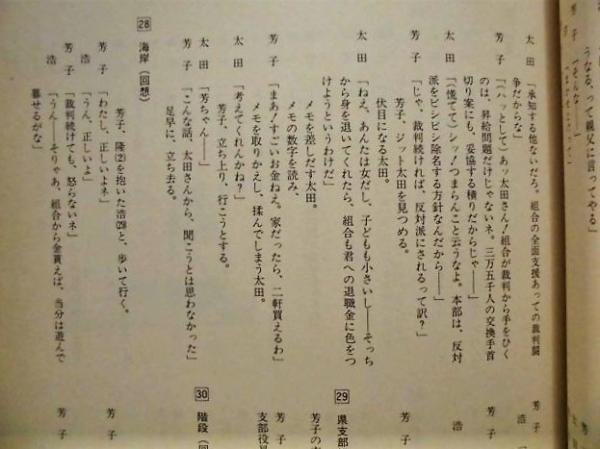 うなる、って親父に言ってやる」
太田 「承知する他ないだろ。組合の全面支援あっての裁判闘
争だからな」
芳子 「(ハッとして)あッ太田さん!組合が裁判から手をひく
のは、昇給問題だけじゃないネ。三万五千人の交換手首
切り案にも、妥協する積りだからじゃ――」
太田 「(慌てて)シッ!つまらんこと云うなよ。本部は、反対
派をビシビシ除名する方針なんだから――」
芳子 「じゃ、裁判続ければ、反対派にされるって訳?」
芳子、ジット太田を見つめる。
伏目になる太田。
太田 「ねえ、あんたは女だし、子どもも小さいし――そっち
から身を退いてくれたら、組合も君への退職金に色をつ
けようというわけだ」
メモを差しだす太田。
メモの数字を読み、
芳子 「まあ!すごいお金ねえ。家だったら、二軒買えるわ」
メモを取りかえし、揉んでしまう太田。
太田 「考えてくれんかね?」
芳子、立ち上り、行こうとする。
太田 「芳ちゃん――」
芳子 「こんな話、太田さんから、聞こうとは思わなかった」
足早に、立ち去る。
28 海岸(回想)
芳子、隆(2)を抱いた浩(29)と、歩いて行く。
芳子 「わたし、正しいよネ」
浩 「うん、正しいよ」
芳子 「裁判続けても、怒らないネ」
浩 「うん――そりゃあ、組合から金貰えば、当分は遊んで
暮せるがな」
芳子
浩
芳子
浩
芳子
29 県支部
芳子の
芳子
支部役員
30 階段(回
芳子
芳子